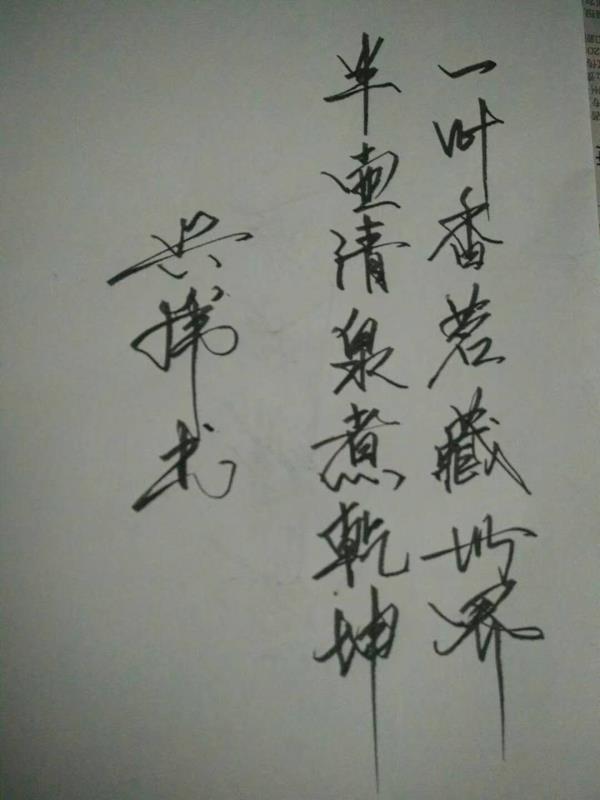 一叶香茗藏世界
半壶清泉煮乾坤
书